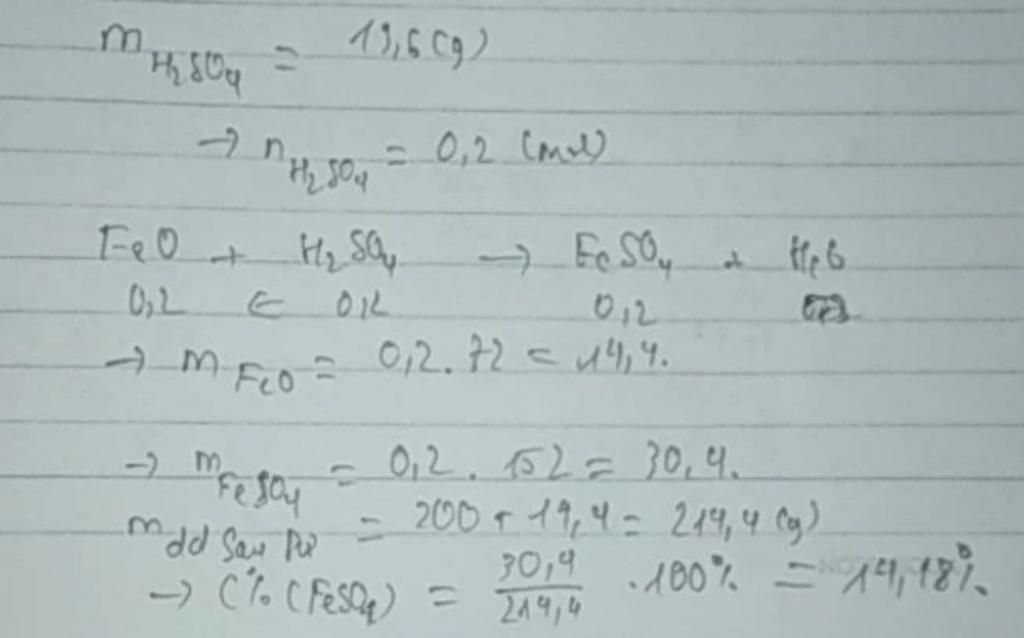 m H₂SO₄ = 19,6 (g)
→ n H₂SO₄ = 0,2 (mol)
FeO + H₂SO₄ → FeSO₄ + H₂O
0,2 ← 0,2 0,2
→ m FeO = 0,2. 72 = 14,4.
→ m FeSO₄ = 0,2. 152 = 30,4.
m dd sau pứ = 200 + 14,4 = 214,4 (g)
→ C% (FeSO₄) = 30,4/214,4 .100% = 14,18%